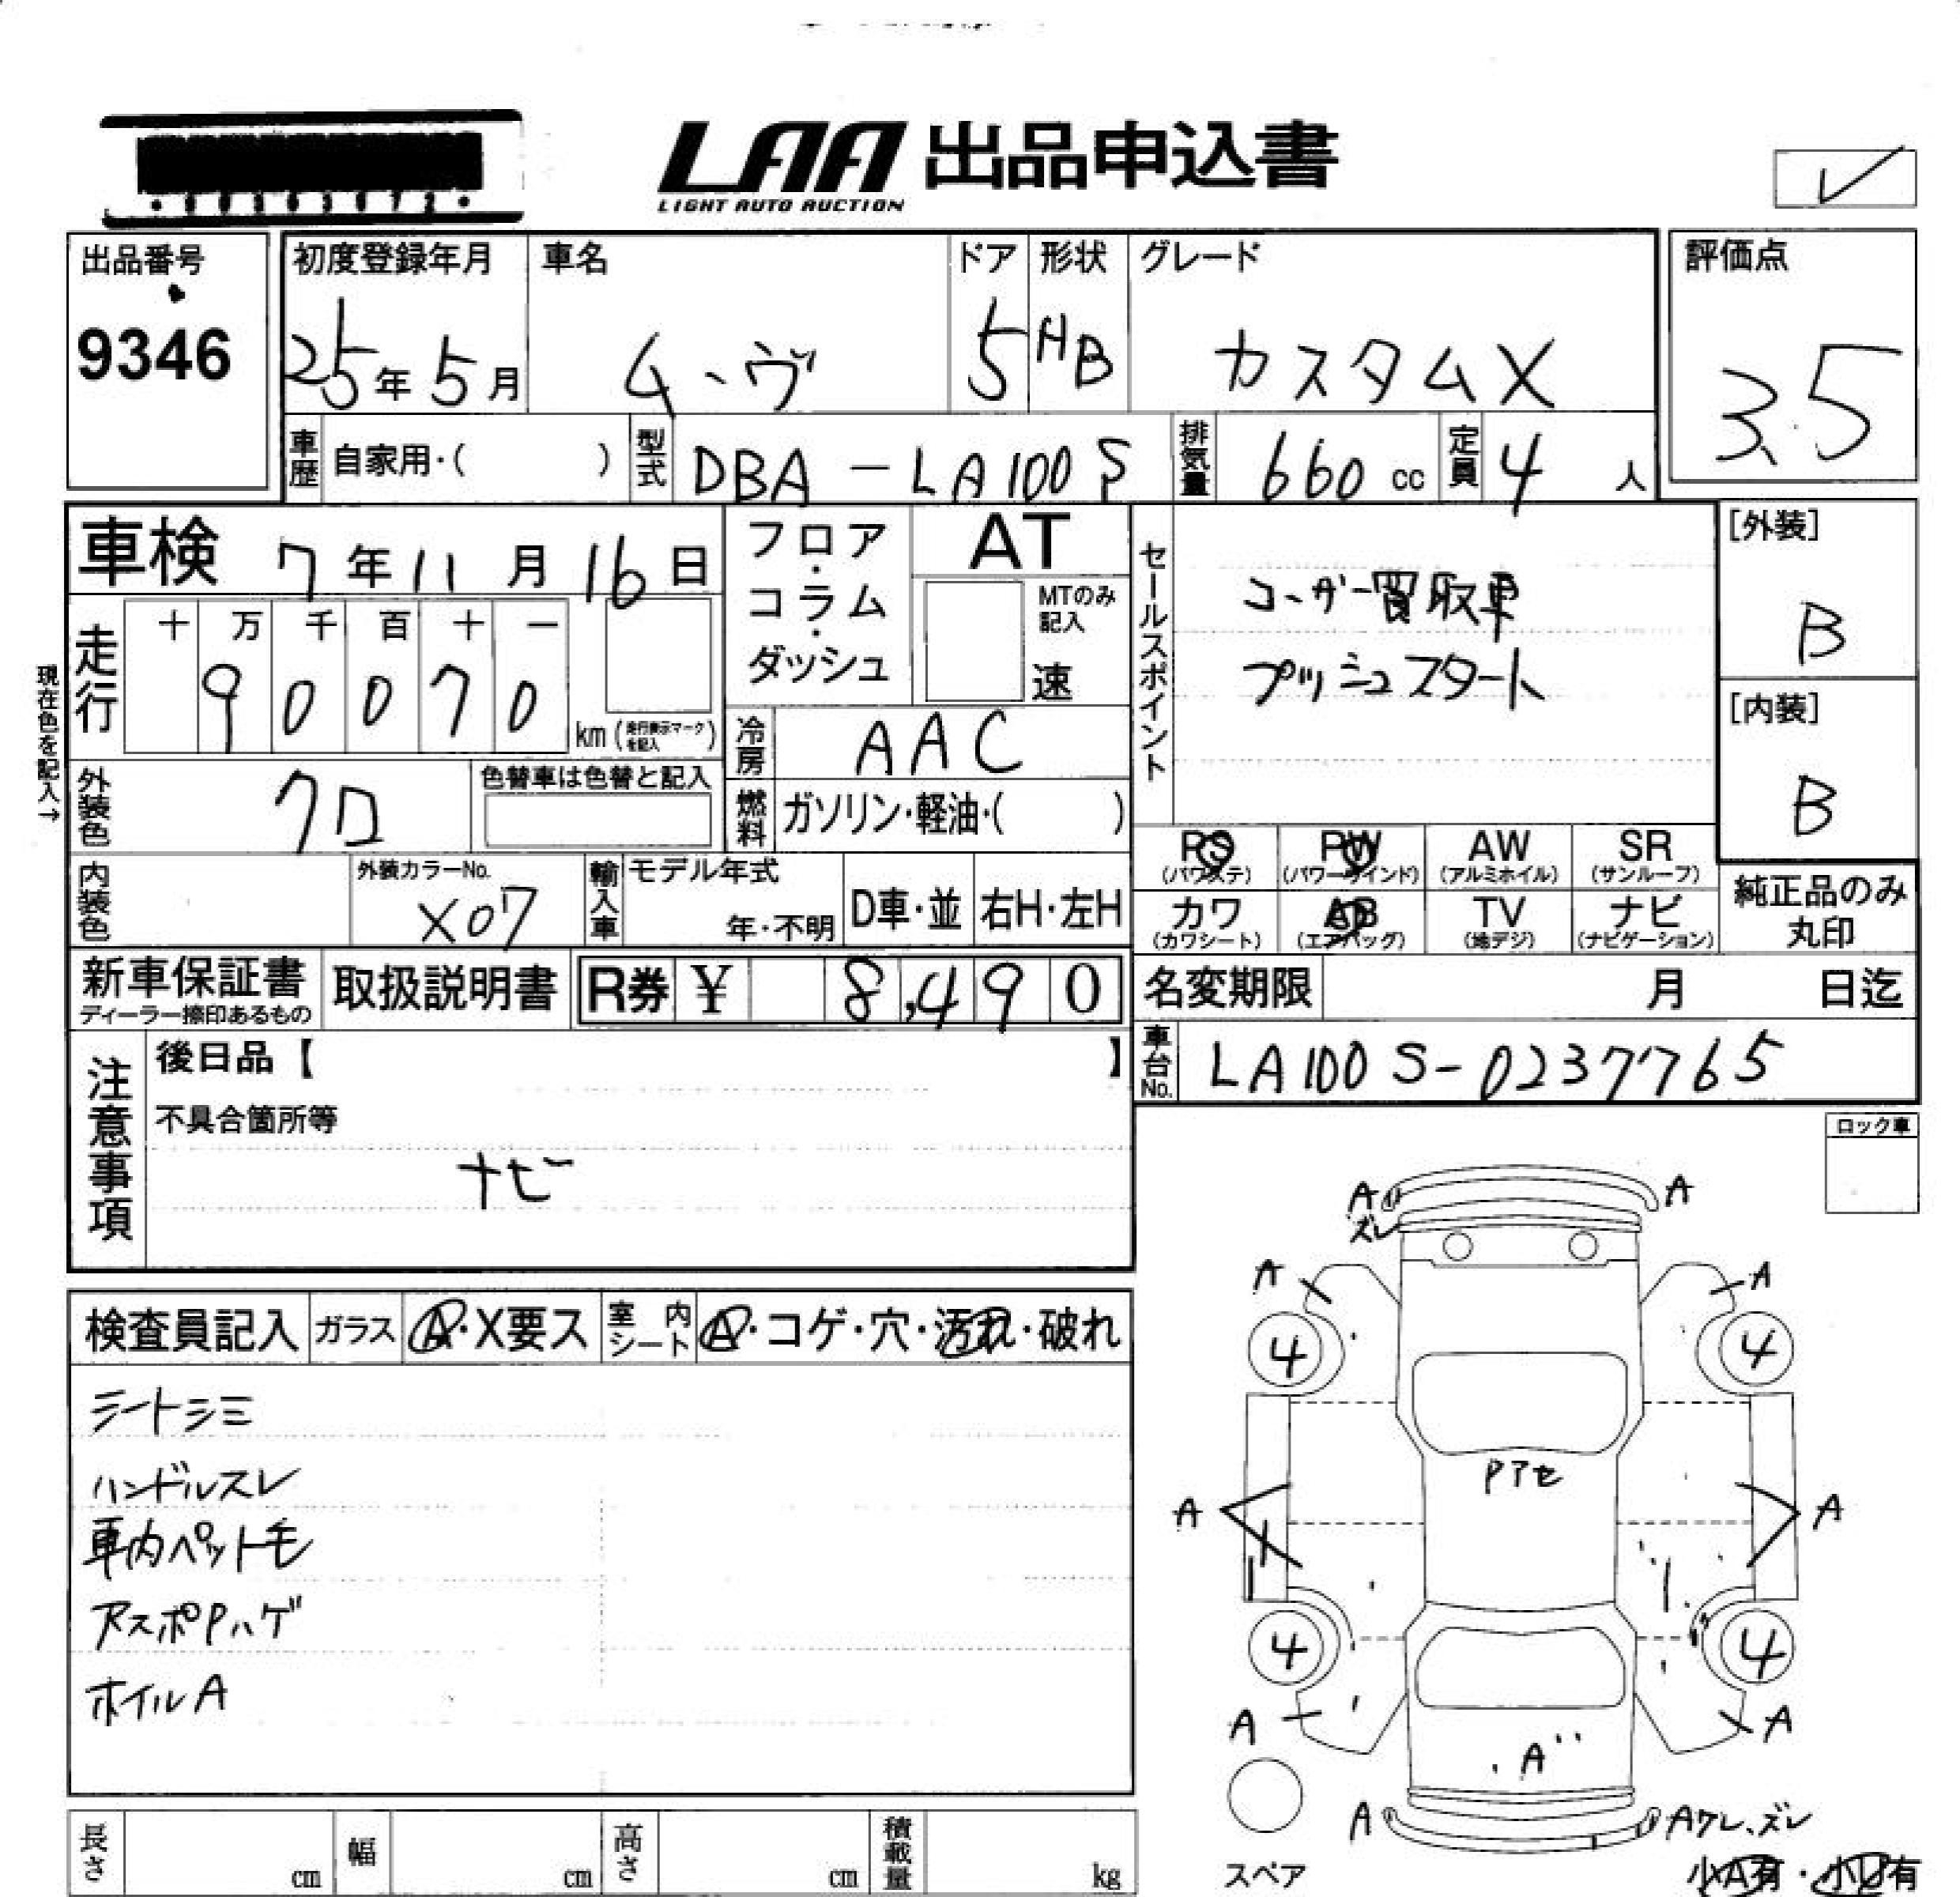 LAA 出品申込書
LIGHT AUTO AUCTION
レ
出品番号
9346
初度登録年月
25年5月
車名
ムーヴ
ドア
5
形状
HB
グレード
カスタムX
評価点
3.5
車歴 自家用・( )
型式 DBA-LA100S
排気量 660 cc
定員 4 人
車検 7年11月16日
フロア・コラム・ダッシュ
AT
MTのみ記入
速
セールスポイント
ユーザー買取車
プッシュスタート
[外装]
B
[内装]
B
現在色を記入→
走行
十 万 千 百 十 一
9 0 0 7 0
km (走行表示マークを記入)
冷房 AAC
外装色 クロ
色替車は色替と記入
燃料 ガソリン・軽油・( )
PS (パワステ)
PW (パワーウインド)
AW (アルミホイル)
SR (サンルーフ)
カワ (カワシート)
AB (エアバッグ)
TV (地デジ)
ナビ (ナビゲーション)
純正品のみ丸印
内装色
外装カラーNo.
X07
輸入車
モデル年式
年・不明
D車・並
右H・左H
新車保証書
ディーラー捺印あるもの
取扱説明書
R券 ¥ 8,490
名変期限 月 日迄
車台No. LA100S-0237765
注意事項
後日品【 】
不具合箇所等
ナビ
ロック車
検査員記入
ガラス Ⓐ・X要ス
室内シート Ⓐ・コゲ・穴・汚れ・破れ
シートシミ
ハンドルスレ
車内ペット毛
アスポPハゲ
ホイルA
A A
ズレ
A A
4 4
Pアセ
A A
4 4
A A
A
A Aワレ、ズレ
スペア
小A有・小U有
長さ cm
幅 cm
高さ cm
積載量 kg